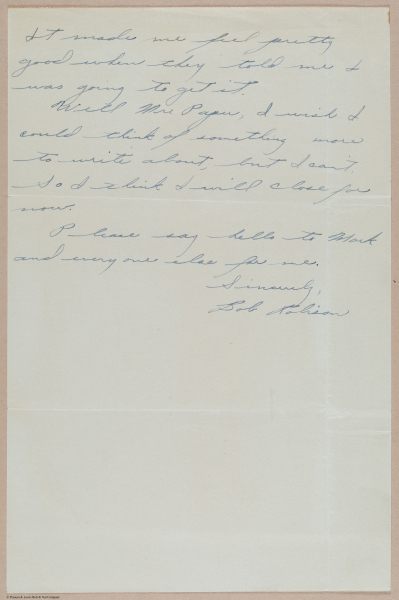 It made me feel pretty
good when they told me I
was going to get it.
Well Mr. Paper, I wish I
could think of something more
to write about, but I can't.
So I think I will close for
now.
Please say hello to Mark
and everyone else for me.
Sincerely,
Bob Robison